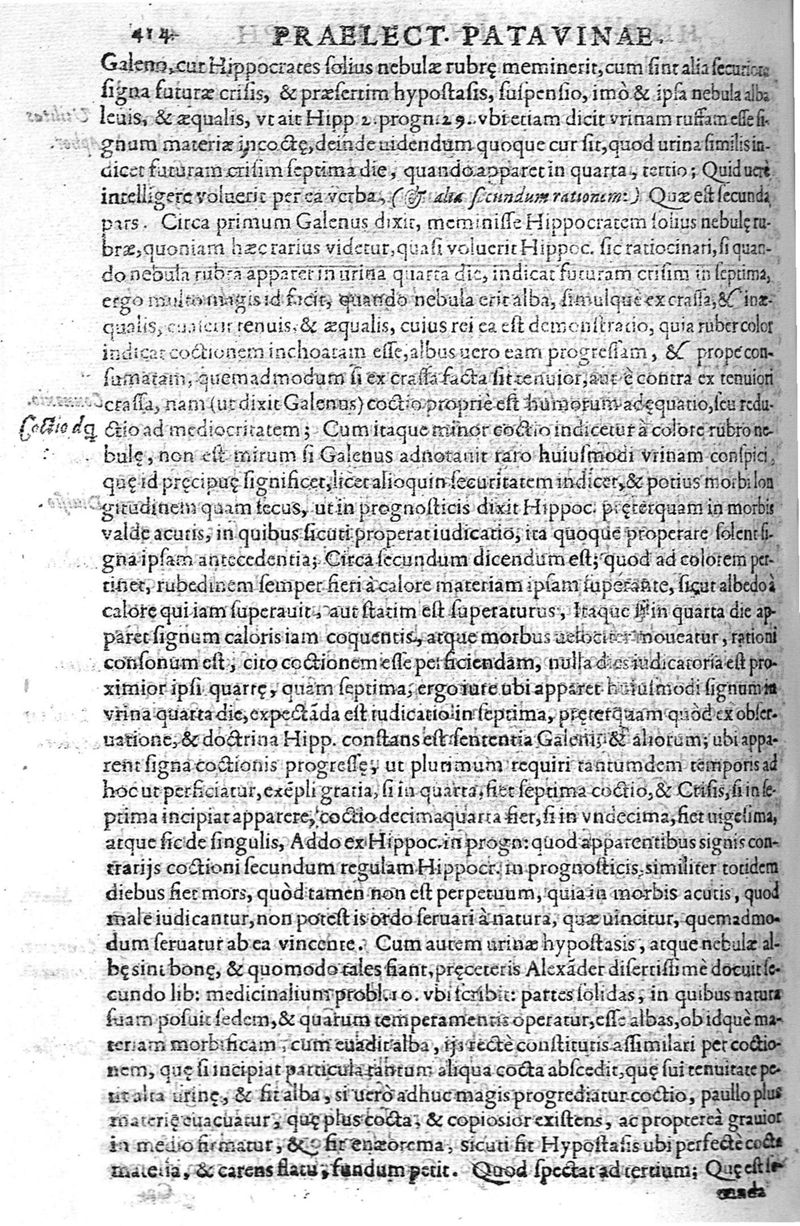 414. PRAELECT. PATAVINAE.
Galeno, cur Hippocrates solius nebulæ rubrę meminerit, cum sint alia securiora
signa futuræ crisis, & præsertim hypostasis, suspensio, imò & ipsa nebula alba
leuis, & æqualis, vt ait Hipp. 2. progn. 29. vbi etiam dicit vrinam ruffam esse si-
gnum materiæ incoctę, deinde uidendum quoque cur sit, quod urina similis in-
dicet futuram crisim septima die, quando apparet in quarta, tertio; Quid uerè
intelligere voluerit per ea verba, (& alia secundum rationem:) Quæ est secunda
pars. Circa primum Galenus dixit, meminisse Hippocratem solius nebulę ru-
bræ, quoniam hæc rarius videtur, quasi voluerit Hippoc. sic ratiocinari, si quan-
do nebula rubra apparet in urina quarta die, indicat futuram crisim in septima,
ergo multo magis id facit, quando nebula erit alba, simulquè ex crassa, & inæ-
qualis, euaserit tenuis, & æqualis, cuius rei ea est demonstratio, quia ruber color
indicat coctionem inchoatam esse, albus uero eam progressam, & prope con-
sumatam, quemadmodum si ex crassa facta sit tenuior, aut è contra ex tenuiori
crassa, nam (ut dixit Galenus) coctio propriè est humorum adęquatio, seu redu-
Coctio dq
ctio ad mediocritatem; Cum itaque minor coctio indicetur à colore rubro ne-
bulę, non est mirum si Galenus adnotauit raro huiusmodi vrinam conspici,
quę id pręcipuę significet, licet alioquin securitatem indicet, & potius morbi lon
gitudinem quam secus, ut in prognosticis dixit Hippoc. pręterquam in morbis
valde acutis, in quibus sicuti properat iudicatio, ita quoque properare solent si-
gna ipsam antecedentia; Circa secundum dicendum est; quod ad colorem per-
tinet, rubedinem semper fieri à calore materiam ipsam superante, sicut albedo à
calore qui iam superauit, aut statim est superaturus, Itaque si in quarta die ap-
paret signum caloris iam coquentis, atque morbus uelociter moueatur, rationi
consonum est, cito coctionem esse perficiendam, nulla dies iudicatoria est pro-
ximior ipsi quartę, quàm septima; ergo iure ubi apparet huiusmodi signum in
vrina quarta die, expectãda est iudicatio in septima, pręterquam quòd ex obser-
uatione, & doctrina Hipp. constans est sententia Galeni, & aliorum; ubi appa-
rent signa coctionis progressę, ut plurimum requiri tantumdem temporis ad
hoc ut perficiatur, exẽpli gratia, si in quarta, fiet septima coctio, & Crisis, si in se-
ptima incipiat apparere, coctio decimaquarta fiet, si in vndecima, fiet uigesima,
atque sic de singulis, Addo ex Hippoc. in progn: quod apparentibus signis con-
trarijs coctioni secundum regulam Hippocr. in prognosticis, similiter totidem
diebus fiet mors, quòd tamen non est perpetuum, quia in morbis acutis, quod
male iudicantur, non potest is ordo seruari à natura, quæ uincitur, quemadmo-
dum seruatur ab ea vincente. Cum autem urinæ hypostasis, atque nebulæ al-
bę sint bonę, & quomodo tales fiant, pręceteris Alexãder disertissimè docuit se-
cundo lib: medicinalium probl. 10. vbi scribit: partes solidas, in quibus natura
suam posuit sedem, & quarum temperamentis operatur, esse albas, ob idquè ma-
teriam morbificam, cum euadit alba, ijs rectè constitutis assimilari per coctio-
nem, quę si incipiat particula tantum aliqua cocta abscedit, quę sui tenuitate pe-
tit alta urinę, & fit alba, si uerò adhuc magis progrediatur coctio, paullo plus
materię euacuatur, quę plus cocta, & copiosior existens, ac proptereà grauior
in medio firmatur, & fit enæorema, sicuti fit Hypostasis ubi perfectè cocta
materia, & carens flatu, fundum petit. Quod spectat ad tertium; Quę est se-
cunda